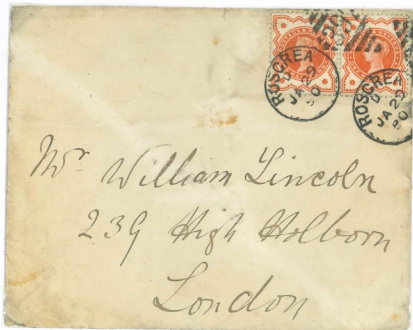 ROSCREA
D
JA 22
90
ROSCREA
D
JA 22
90
Mr. William Lincoln
239 High Holborn
London